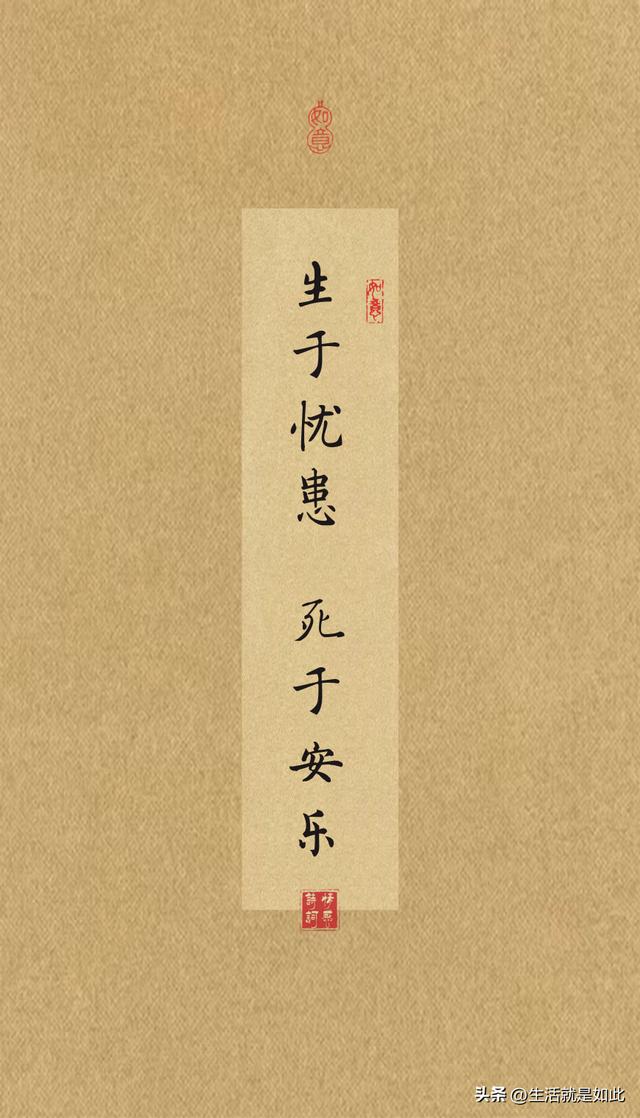 如意
如意
生于忧患 死于安乐
情系
詩詞
头条 @生活就是如此